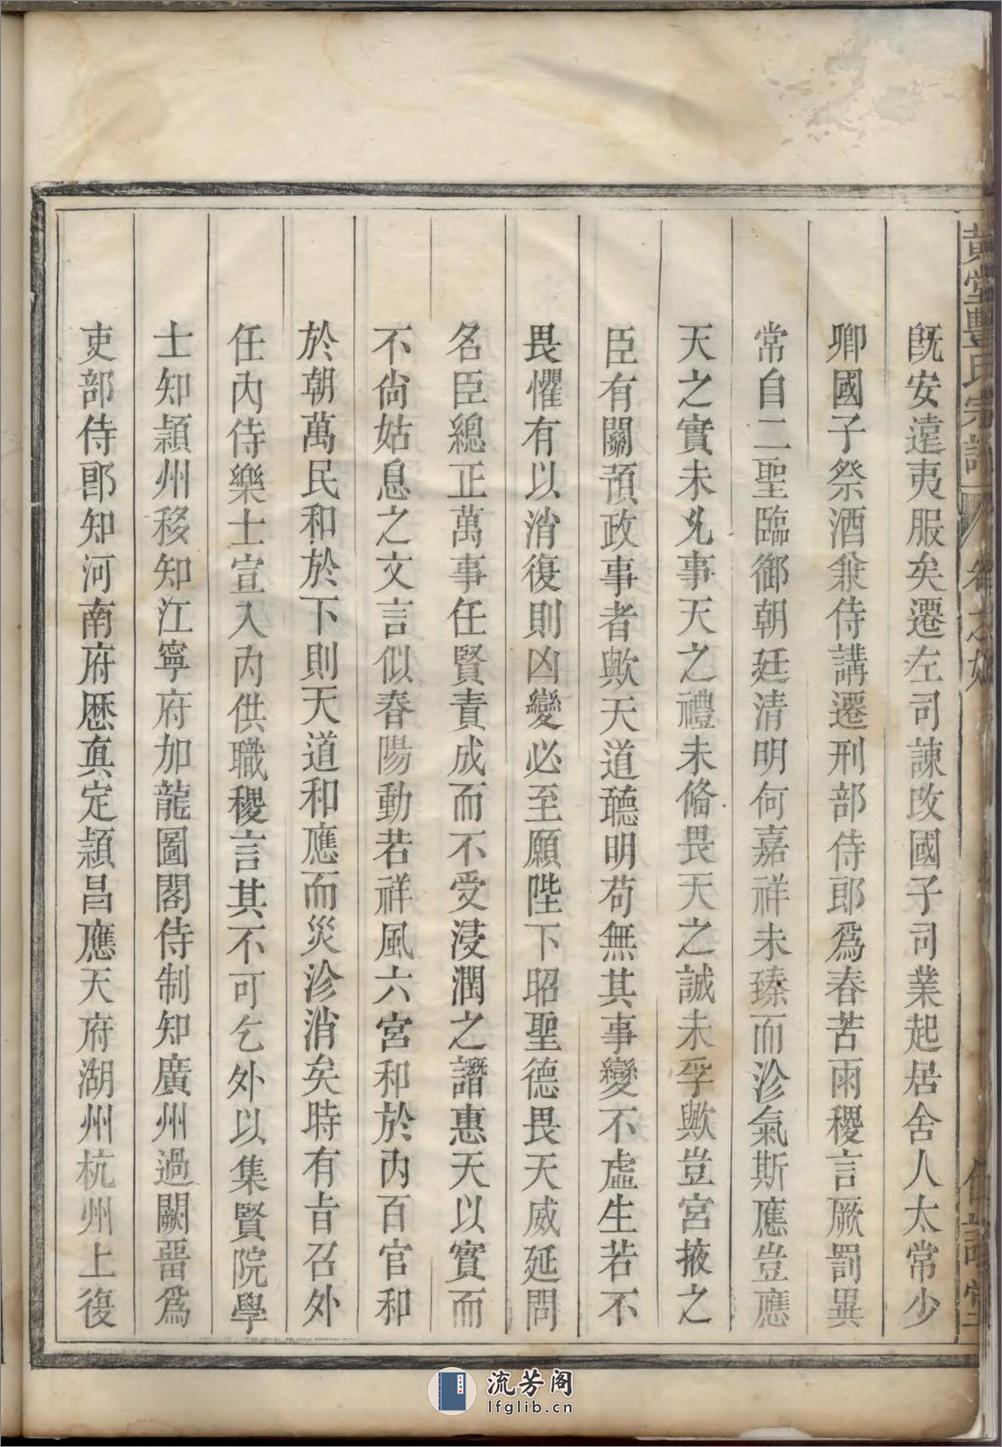 黄堂豐氏宗譜
卷之始
既安遠夷服矣遷左司諫改國子司業起居舍人太常少
卿國子祭酒兼侍講遷刑部侍郎爲春苦雨稷言厥罰異
常自二聖臨御朝廷清明何嘉祥未臻而沴氣斯應豈應
天之實未乆事天之禮未脩畏天之誠未孚歟豈宮掖之
臣有關預政事者歟天道聽明苟無其事變不虛生若不
畏懼有以消復則凶變必至願陛下昭聖德畏天威延問
名臣總正萬事任賢責成而不受浸潤之譖惠天以實而
不尙姑息之文言似春陽動若祥風六宮和於內百官和
於朝萬民和於下則天道和應而災沴消矣時有旨召外
任內侍樂士宣入內供職稷言其不可乞外以集賢院學
士知潁州移知江寧府加龍圖閣侍制知廣州過闕畱爲
吏部侍郎知河南府歷真定潁昌應天府湖州杭州上復
流芳阁
lfglib.cn